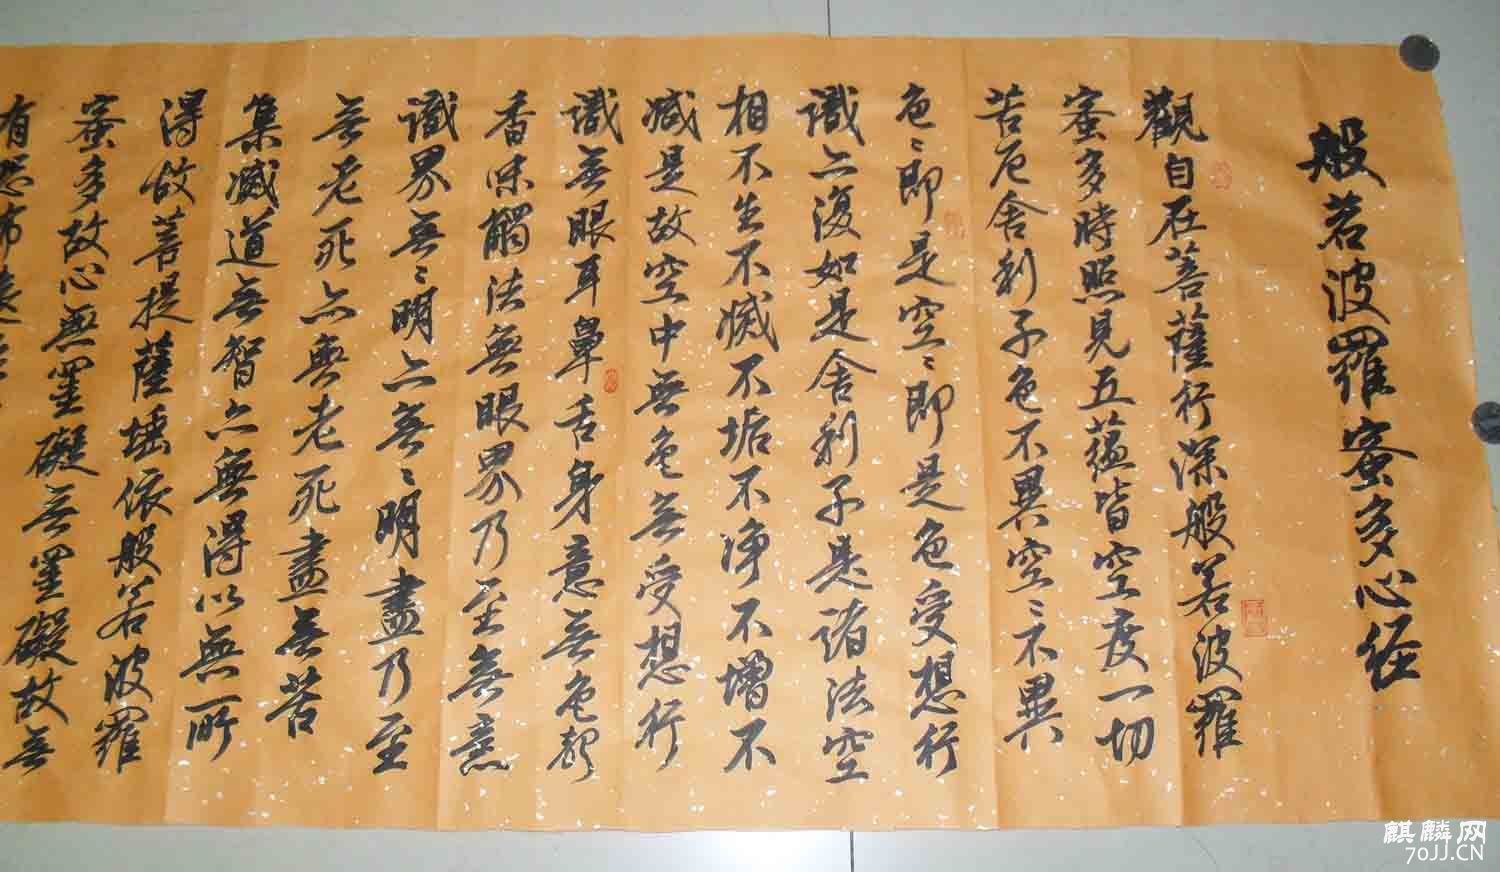 般若波羅蜜多心经
觀自在菩薩行深般若波羅
蜜多時照見五蘊皆空度一切
苦厄舍利子色不異空〻不異
色〻即是空〻即是色受想行
識亦復如是舍利子是諸法空
相不生不滅不垢不净不增不
减是故空中無色無受想行
識無眼耳鼻舌身意無色声
香味觸法無眼界乃至無意
識界無〻明亦無〻明盡乃至
無老死亦無老死盡無苦
集滅道無智亦無得以無所
得故菩提薩埵依般若波羅
蜜多故心無罣礙無罣礙故無
有恐怖遠
麒麟网
70JJ.CN